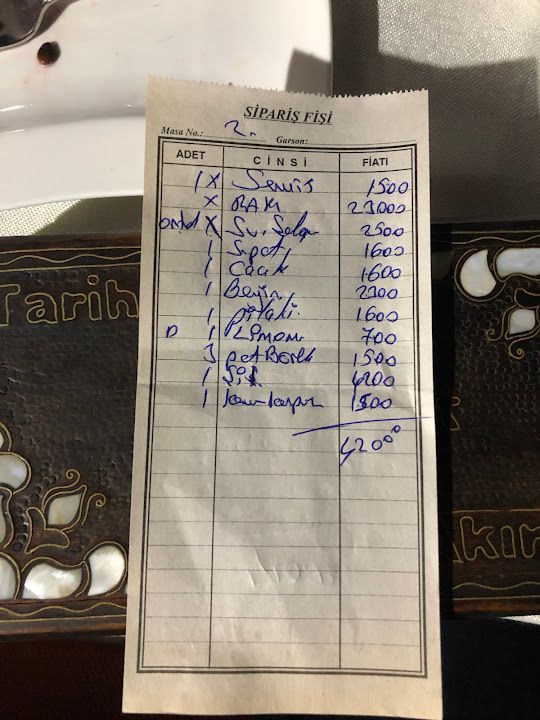 SİPARİŞ FİŞİ
Masa No.: 2. Garson:
ADET CİNSİ FİATI
1 X Servis 1500
X RAKI 23000
X Su. 2500
1 1600
1 Cacık 1600
1 Beyin 2300
1 pilaki 1600
1 Limon 700
3 1500
1 Şiş 4200
1 1500
42000
Tarih
Akır